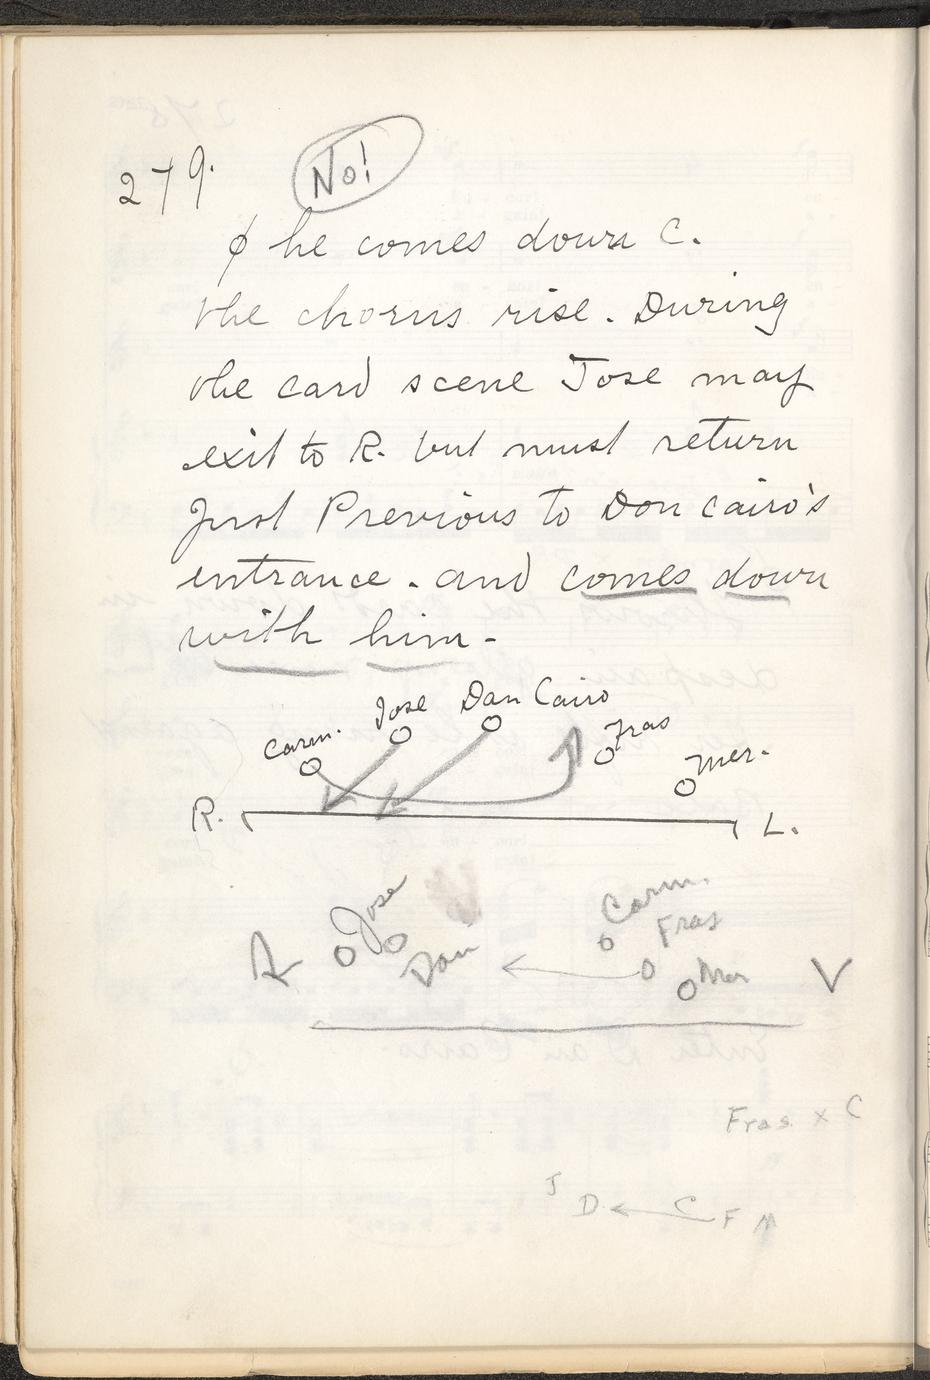 279. No!
φ he comes down C.
the chorus rise. During
the card scene Jose may
exit to R. but must return
just Previous to Don Cairo's
entrance. and comes down
with him-
Carm. Jose Dan Cairo Fras Mer.
R. L.
Jose Carm.
Dan Fras
Mer
Fras. x C
J
D C F M